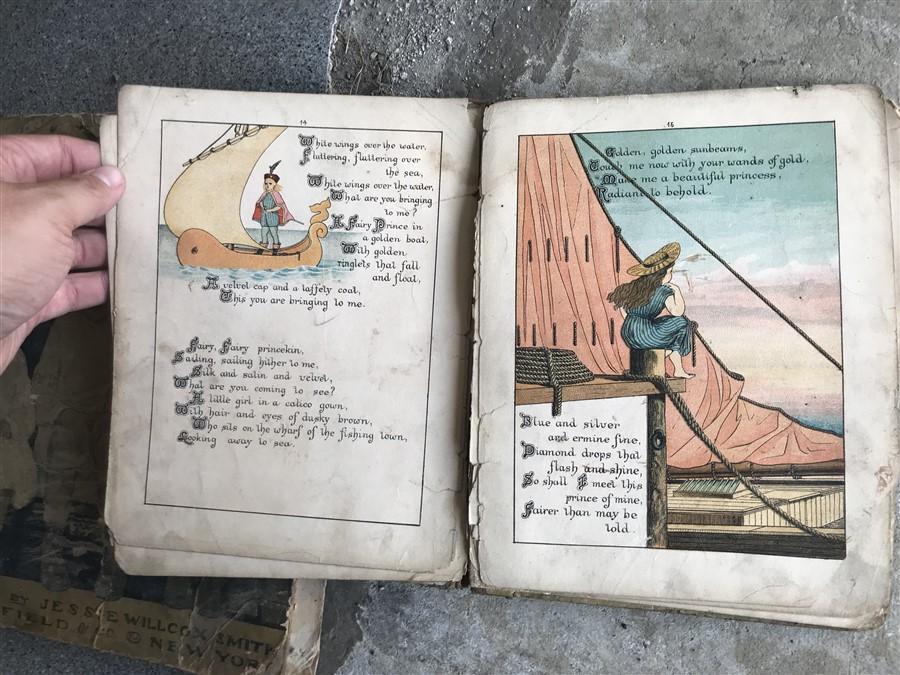 14
White wings over the water,
Fluttering, fluttering over
the sea,
White wings over the water,
What are you bringing
to me?
A Fairy Prince in
a golden boat,
With golden
ringlets that fall
and float,
A velvet cap and a taffety coat,
This you are bringing to me.
Fairy, Fairy princekin,
Sailing, sailing hither to me,
Silk and satin and velvet,
What are you coming to see?
A little girl in a calico gown,
With hair and eyes of dusky brown,
Who sits on the wharf of the fishing town,
Looking away to sea.
15
Golden, golden sunbeams,
Touch me now with your wands of gold,
Make me a beautiful princess,
Radiant to behold.
Blue and silver
and ermine fine,
Diamond drops that
flash and shine,
So shall I meet this
prince of mine,
Fairer than may be
told.
BY JESSIE WILLCOX SMITH
FIELD & CO NEW YORK